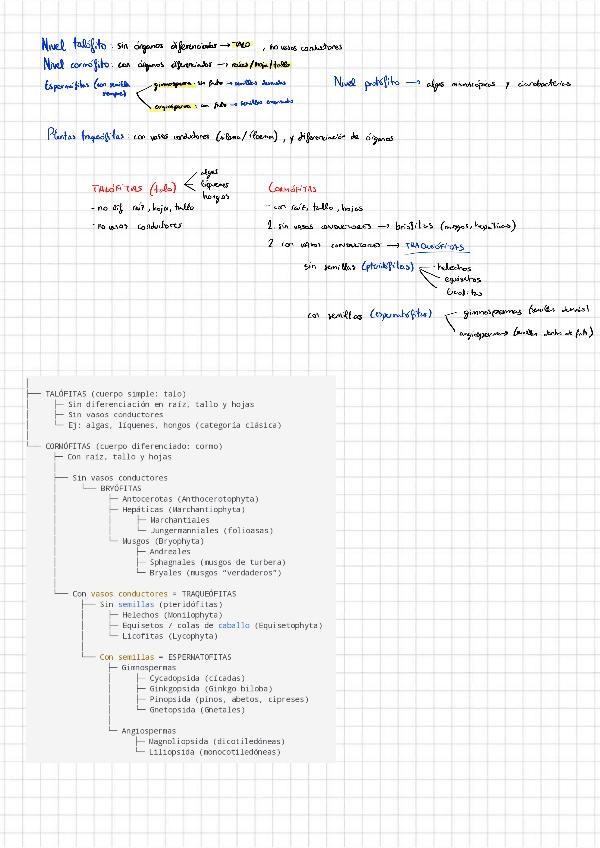 Nivel talófito: sin órganos diferenciados → TALO, no vasos conductores
Nivel cormófito: con órganos diferenciados → raíces/hoja/tallo
Espermáfitas (con semilla siempre)
gimnosperma: sin fruto → semillas desnudas
angiosperma: con fruto → semillas encerradas
Nivel protófito → algas microscópicas y cianobacterias
Plantas traqueófitas: con vasos conductores (xilema/floema), y diferenciación de órganos
TALÓFITAS (talo)
algas
líquenes
hongos
- no dif raíz, hoja, tallo
- no vasos conductores
CORMÓFITAS
- con raíz, tallo, hojas
1. sin vasos conductores → briofitas (musgos, hepáticas)
2 con vasos conductores → TRAQUEÓFITAS
sin semillas (pteridófitas)
helechos
equisetos
licofitas
con semillas (espermatófitas)
gimnospermas (semillas desnudas)
angiospermas (semillas dentro de fruto)
├── TALÓFITAS (cuerpo simple: talo)
│ ├─ Sin diferenciación en raíz, tallo y hojas
│ ├─ Sin vasos conductores
│ └─ Ej: algas, líquenes, hongos (categoría clásica)
└── CORNÓFITAS (cuerpo diferenciado: cormo)
├─ Con raíz, tallo y hojas
├─ Sin vasos conductores
│ └── BRYÓFITAS
│ ├─ Antocerotas (Anthocerotophyta)
│ ├─ Hepáticas (Marchantiophyta)
│ │ ├─ Marchantiales
│ │ └─ Jungermanniales (folioasas)
│ └─ Musgos (Bryophyta)
│ ├─ Andreales
│ ├─ Sphagnales (musgos de turbera)
│ └─ Bryales (musgos "verdaderos")
└── Con vasos conductores = TRAQUEÓFITAS
├── Sin semillas (pteridófitas)
│ ├─ Helechos (Monilophyta)
│ ├─ Equisetos / colas de caballo (Equisetophyta)
│ └─ Licofitas (Lycophyta)
└── Con semillas = ESPERMATOFITAS
├─ Gimnospermas
│ ├─ Cycadopsida (cícadas)
│ ├─ Ginkgopsida (Ginkgo biloba)
│ ├─ Pinopsida (pinos, abetos, cipreses)
│ └─ Gnetopsida (Gnetales)
└─ Angiospermas
├─ Magnoliopsida (dicotiledóneas)
└─ Liliopsida (monocotiledóneas)